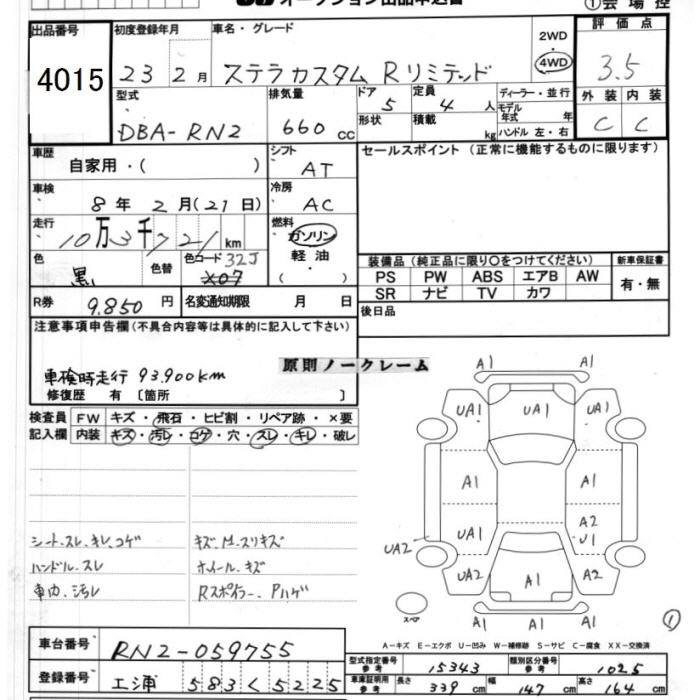 オークション出品申込書 ①会場控
出品番号 4015
初度登録年月 23 2月
車名・グレード ステラカスタム Rリミテッド
2WD 4WD
評価点 3.5
型式 DBA-RN2
排気量 660 cc
ドア 5 定員 4 人
形状 積載 kg
ディーラー・並行
モデル年式 年
ハンドル 左・右
外装 内装
C C
車歴 自家用・( )
シフト AT
セールスポイント(正常に機能するものに限ります)
車検 8年 2月(21日)
冷房 AC
走行 10万3千721 km
燃料 ガソリン 軽油・
色 黒 色替 色コード 32J
装備品(純正品に限り○をつけてください) 新車保証書
PS PW ABS エアB AW 有・無
SR ナビ TV カワ
R券 9,850 円 名変通知期限 月 日
後日品
注意事項申告欄(不具合内容等は具体的に記入して下さい)
原則ノークレーム
車検時走行 93,900km
修復歴 有 〔箇所 〕
検査員記入欄 FW キズ・飛石・ヒビ割・リペア跡・×要
内装 キズ・汚レ・コゲ・穴・スレ・キレ・破レ
A1 A1
UA1 UA1 UA1
A1 A1
UA1 A2 U1
UA2
UA2 A1 A2
A1 A1 A1
スペア
①
シート.スレ.キレ.コゲ キズ.M.スリキズ
ハンドル.スレ ホイール.キズ
車内.汚レ Rスポイラー.Pハゲ
A−キズ E−エクボ U−凹み W−補修跡 S−サビ C−腐食 XX−交換済
車台番号 RN2-059755
型式指定番号 参考 15343 類別区分番号 参考 1025
登録番号 583 く 5225
車庫証明用 参考 長さ 339 cm 幅 147 cm 高さ 164 cm